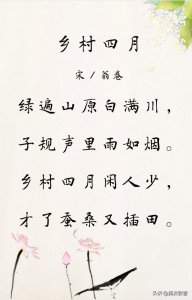 乡村四月
宋／翁卷
绿遍山原白满川，
子规声里雨如烟。
乡村四月闲人少，
才了蚕桑又插田。